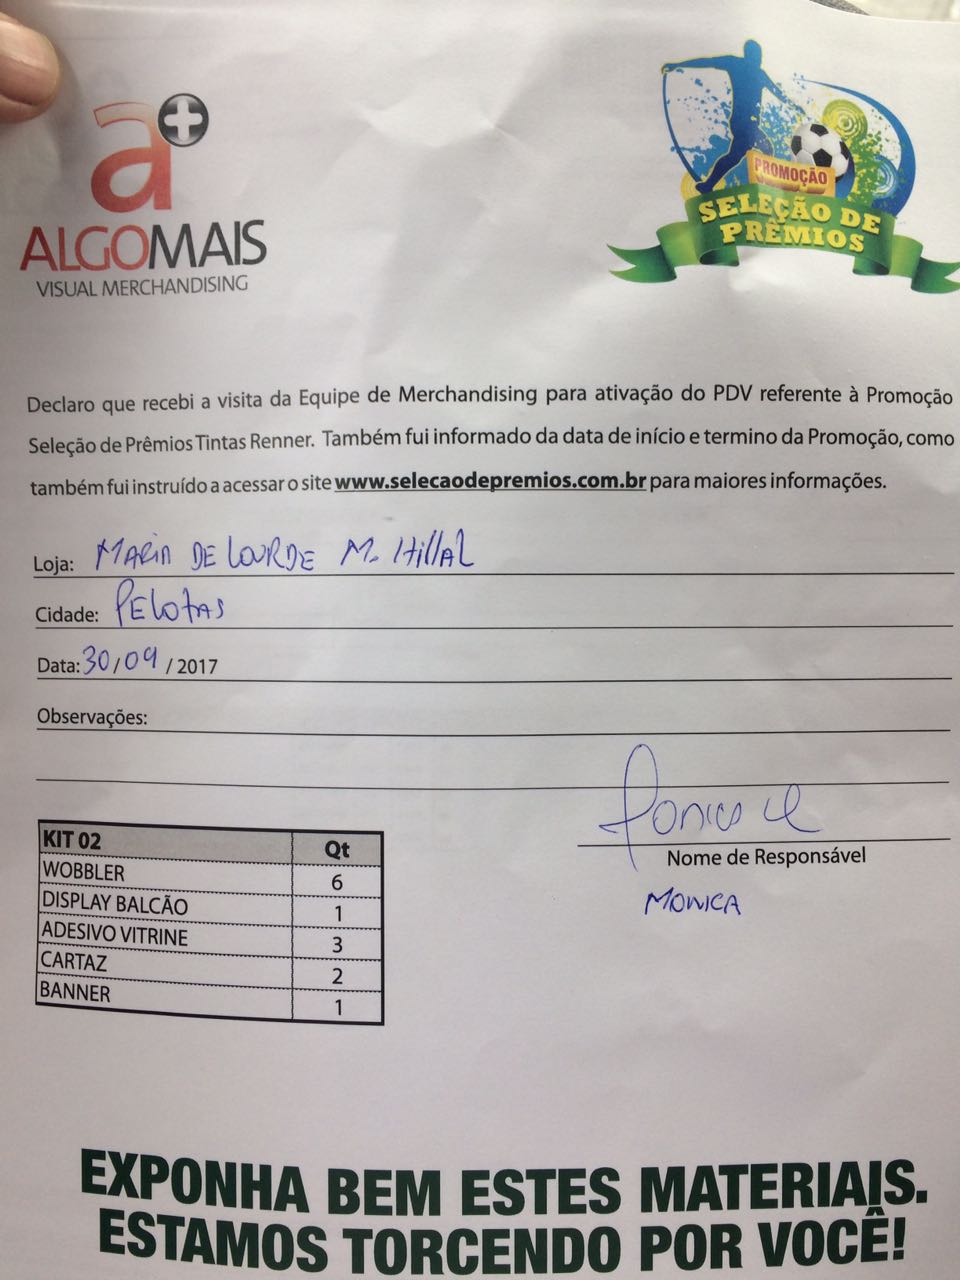 a+
ALGOMAIS
VISUAL MERCHANDISING
PROMOÇÃO
SELEÇÃO DE
PRÊMIOS
Declaro que recebi a visita da Equipe de Merchandising para ativação do PDV referente à Promoção
Seleção de Prêmios Tintas Renner. Também fui informado da data de início e termino da Promoção, como
também fui instruído a acessar o site www.selecaodepremios.com.br para maiores informações.
Loja: MARIA DE LOURDE M. Hillal
Cidade: PELOTAS
Data: 30/09 / 2017
Observações:
Nome de Responsável
MONICA
KIT 02 Qt
WOBBLER 6
DISPLAY BALCÃO 1
ADESIVO VITRINE 3
CARTAZ 2
BANNER 1
EXPONHA BEM ESTES MATERIAIS.
ESTAMOS TORCENDO POR VOCÊ!